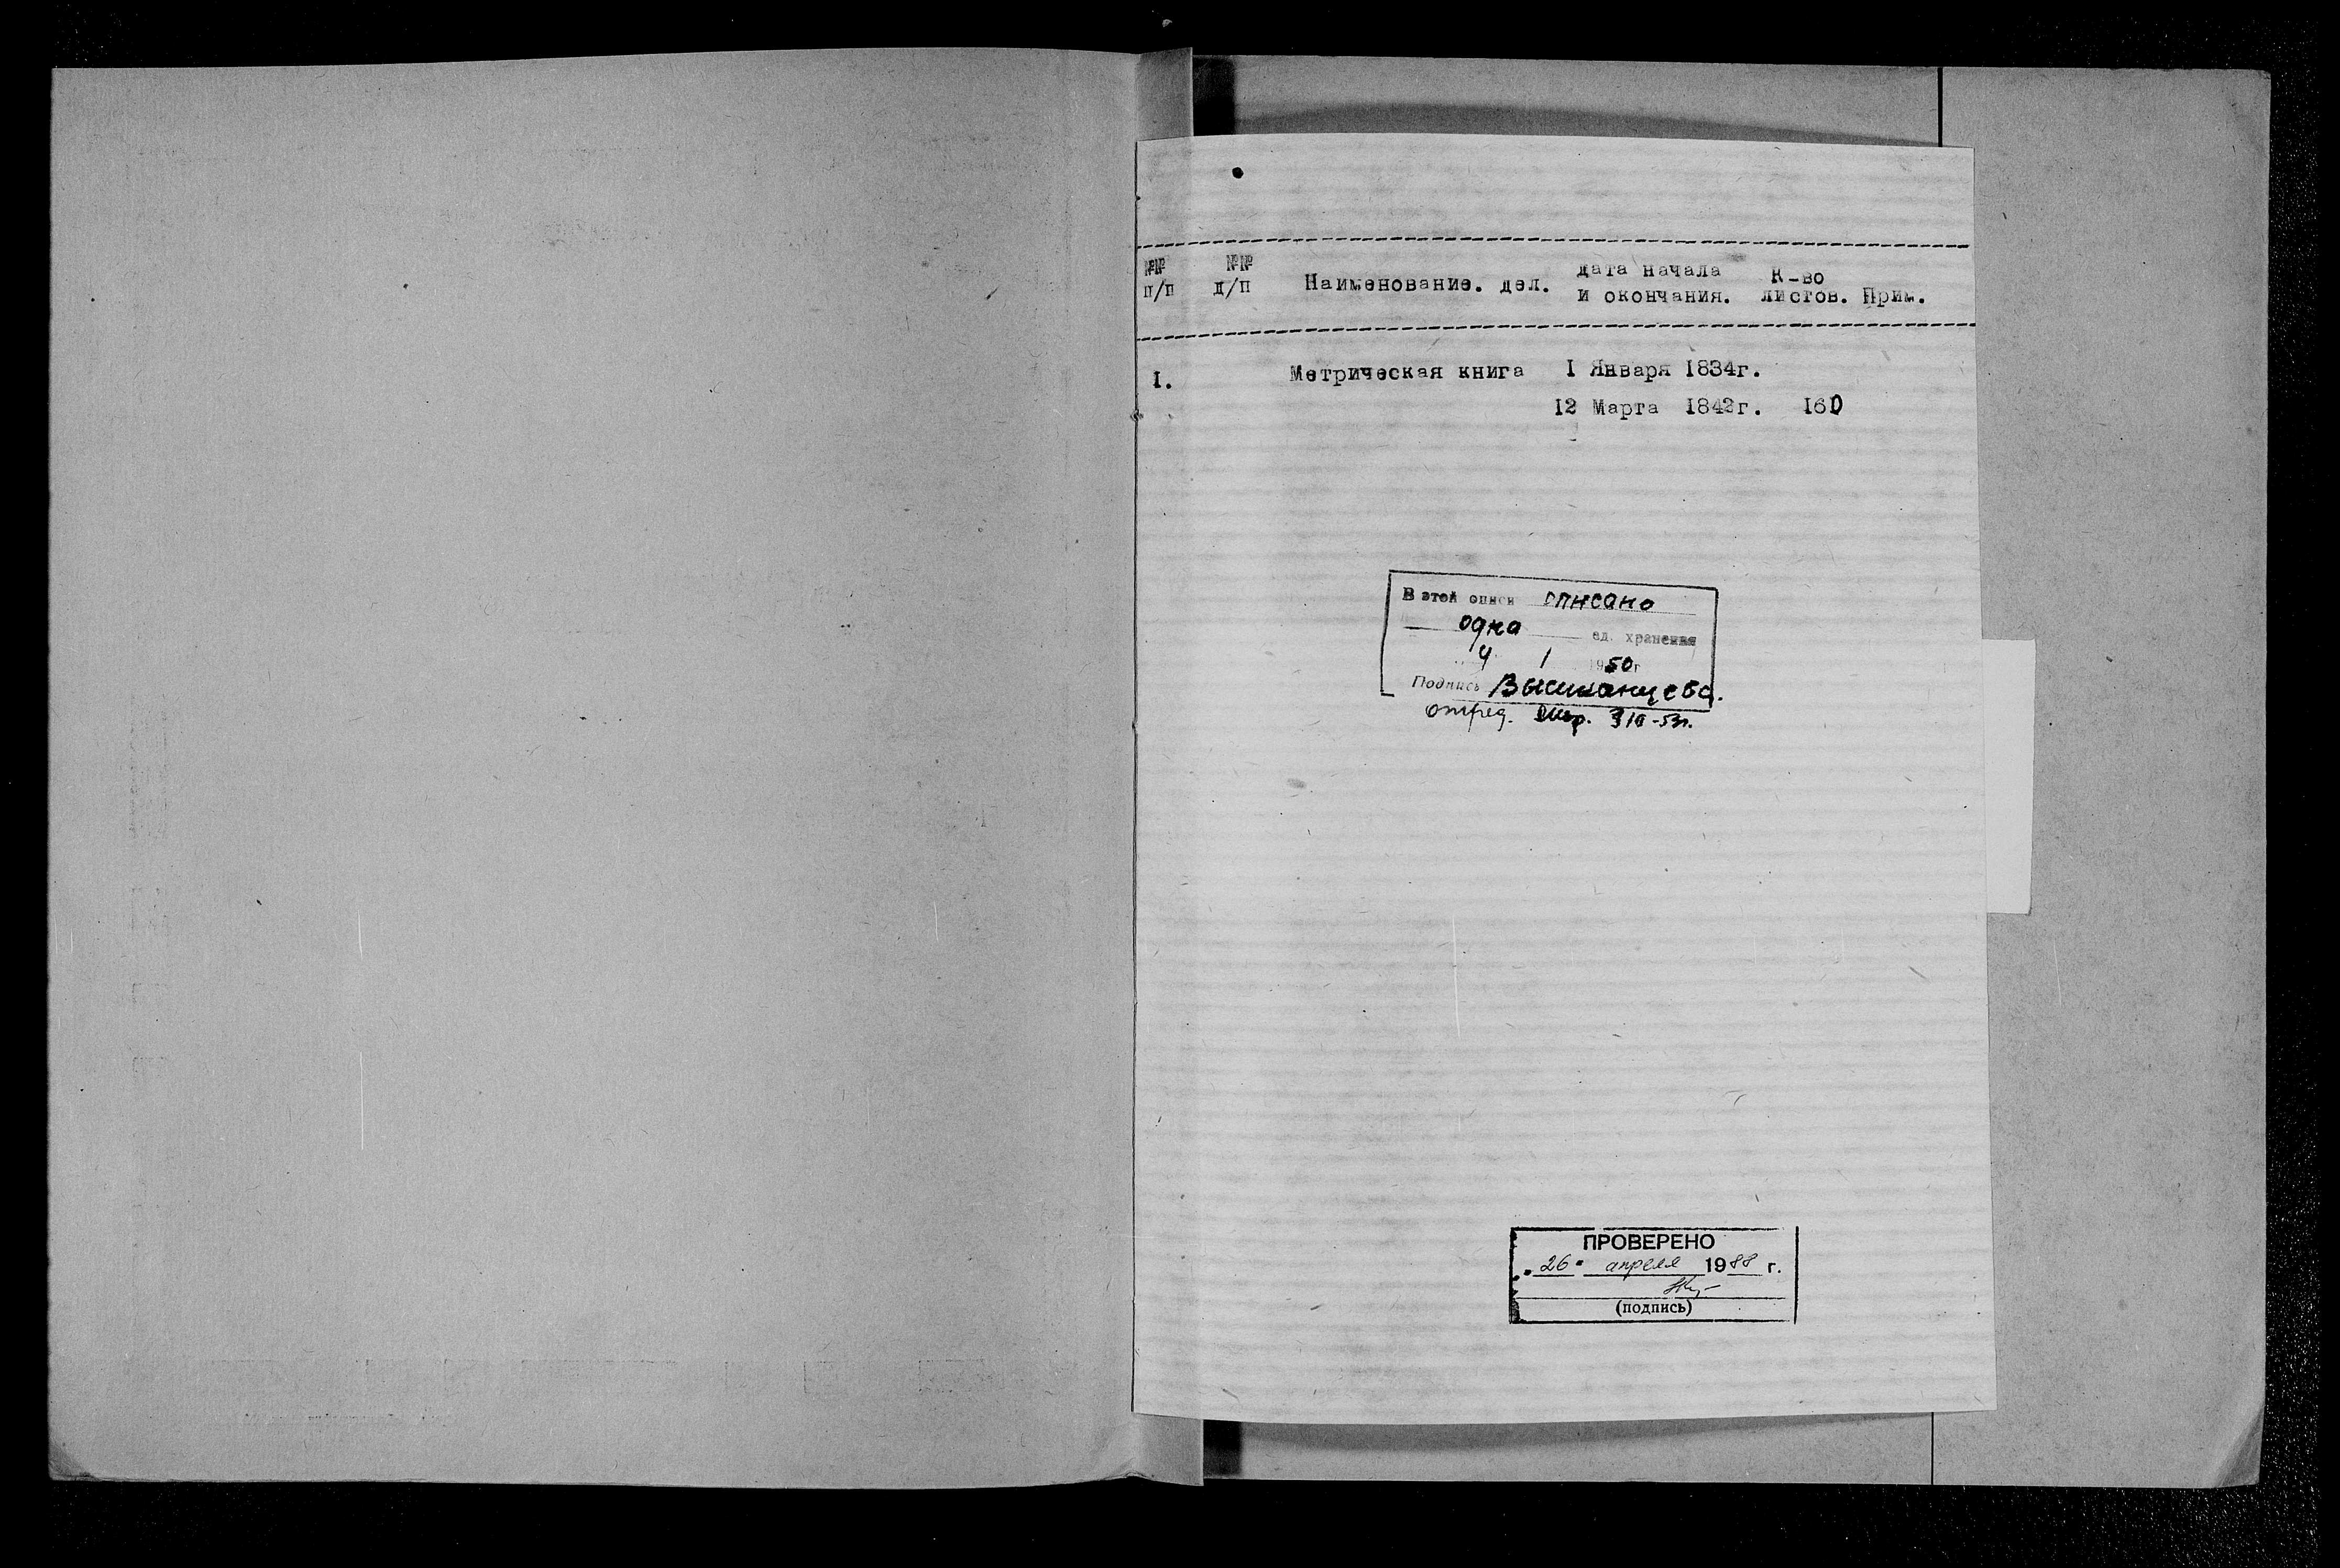 №№ №№ дата начала К-во
п/п д/п Наименование. дел. и окончания. листов. Прим.
I. Метрическая книга I Января 1834г.
I2 Марта 1842г. 160
В этой описи описано
одна ед. хранения
4 1 1950г
Подпись
отред. 53г.
ПРОВЕРЕНО
"26" апреля 1988 г.
(подпись)